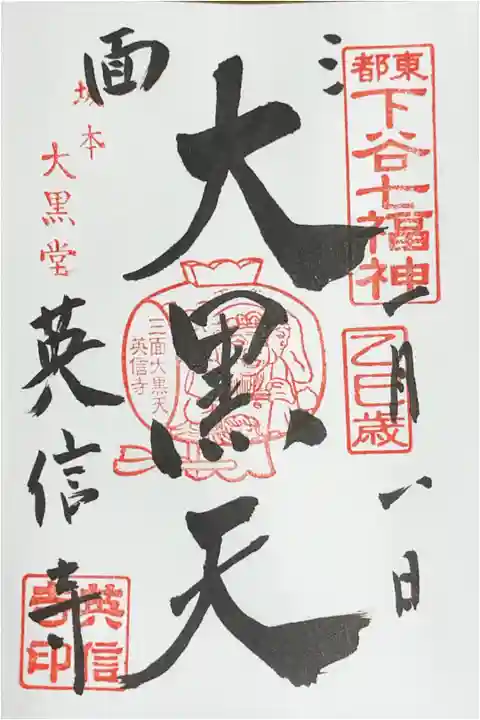 三面
東都
下谷七福神
乙巳歳
一月一日
大黒天
三面大黒天
英信寺
坂本
大黒堂
英信寺
英信
寺印